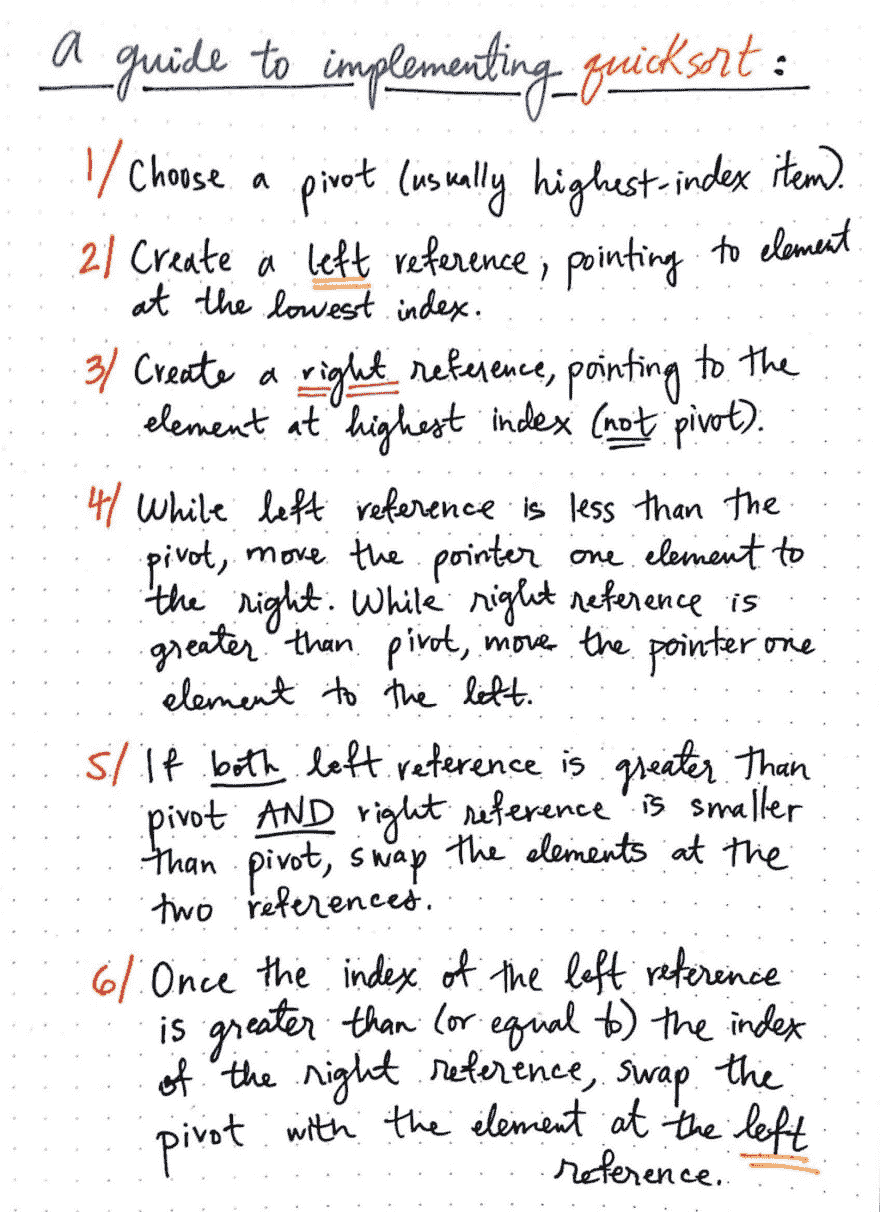 a guide to implementing quicksort:
1/ Choose a pivot (usually highest-index item).
2/ Create a left reference, pointing to element
at the lowest index.
3/ Create a right reference, pointing to the
element at highest index (not pivot).
4/ While left reference is less than the
pivot, move the pointer one element to
the right. While right reference is
greater than pivot, move the pointer one
element to the left.
5/ If both left reference is greater than
pivot AND right reference is smaller
than pivot, swap the elements at the
two references.
6/ Once the index of the left reference
is greater than (or equal to) the index
of the right reference, swap the
pivot with the element at the left
reference.